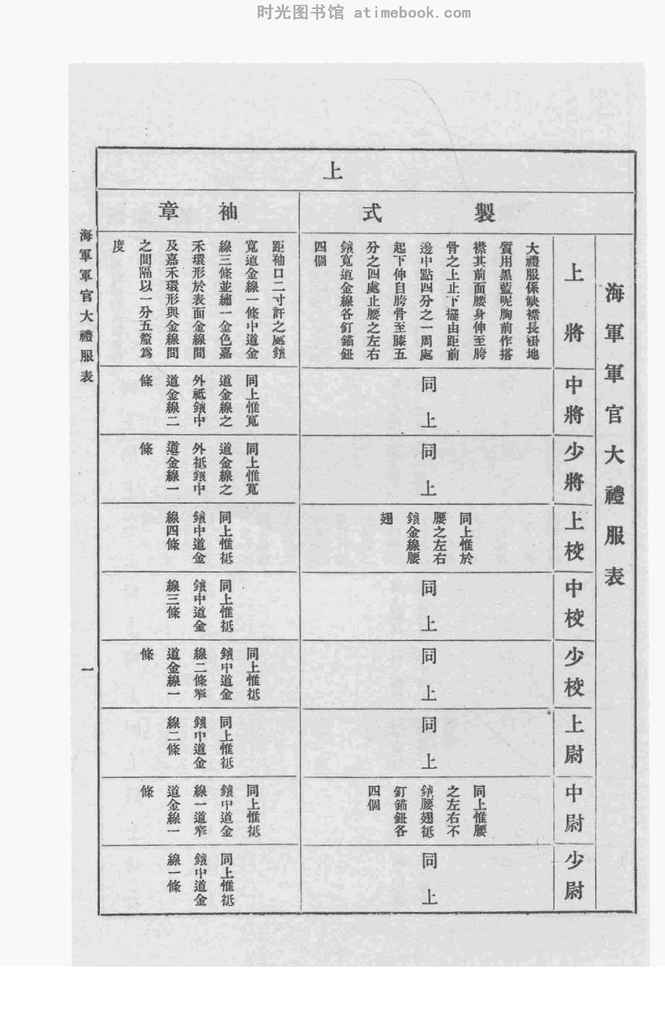 时光图书馆 atimebook.com
海軍軍官大禮服表
上
製式
袖章
上將
大禮服係缺襟長褂地
質用黑藍呢胸前作搭
襟其前面腰身伸至胯
骨之上止下擺由距前
邊中點四分之一周處
起下伸自胯骨至膝五
分之四處止腰之左右
鑲寬道金線各釘錨鈕
四個
距袖口二寸許之處鑲
寬道金線一條中道金
線三條並繡一金色嘉
禾環形於表面金線間
及嘉禾環形與金線間
之間隔以一分五釐爲
度
中將
同上
同上惟寬
道金線之
外祇鑲中
道金線二
條
少將
同上
同上惟寬
道金線之
外祇鑲中
道金線一
條
上校
同上惟於
腰之左右
鑲金線腰
翅
同上惟祇
鑲中道金
線四條
中校
同上
同上惟祇
鑲中道金
線三條
少校
同上
同上惟祇
鑲中道金
線二條窄
道金線一
條
上尉
同上
同上惟祇
鑲中道金
線二條
中尉
同上惟腰
之左右不
鑲腰翅祇
釘錨鈕各
四個
同上惟祇
鑲中道金
線一道窄
道金線一
條
少尉
同上
同上惟祇
鑲中道金
線一條
海軍軍官大禮服表
一